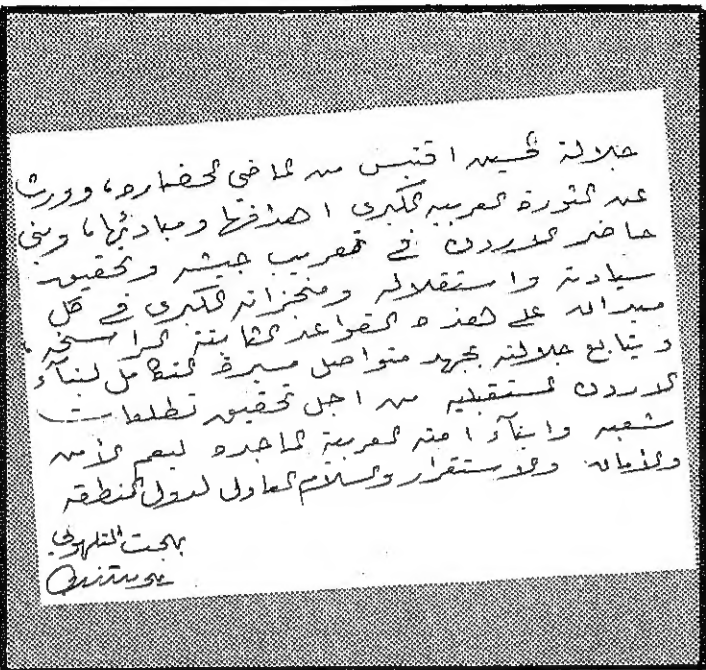 جلالة الحسين اقتبس من الماضي الحضاره، وورث
عن الثورة العربيه الكبرى اهدافها ومبادئها، وبنى
حاضر الاردن في تعريب جيشه وتحقيق
سيادته واستقلاله ومنجزاته الكبرى في كل
ميدان على هذه القواعد الثابتة الراسخه.
ويتابع جلالته بجهد متواصل مسيرة التكامل لبناء
الاردن المستقبليه من اجل تحقيق تطلعات
شعبه وابناء امته العربية الماجده ليعم الأمن
والأمان والاستقرار والسلام العادل لدول المنطقه
بهجت التلهوني